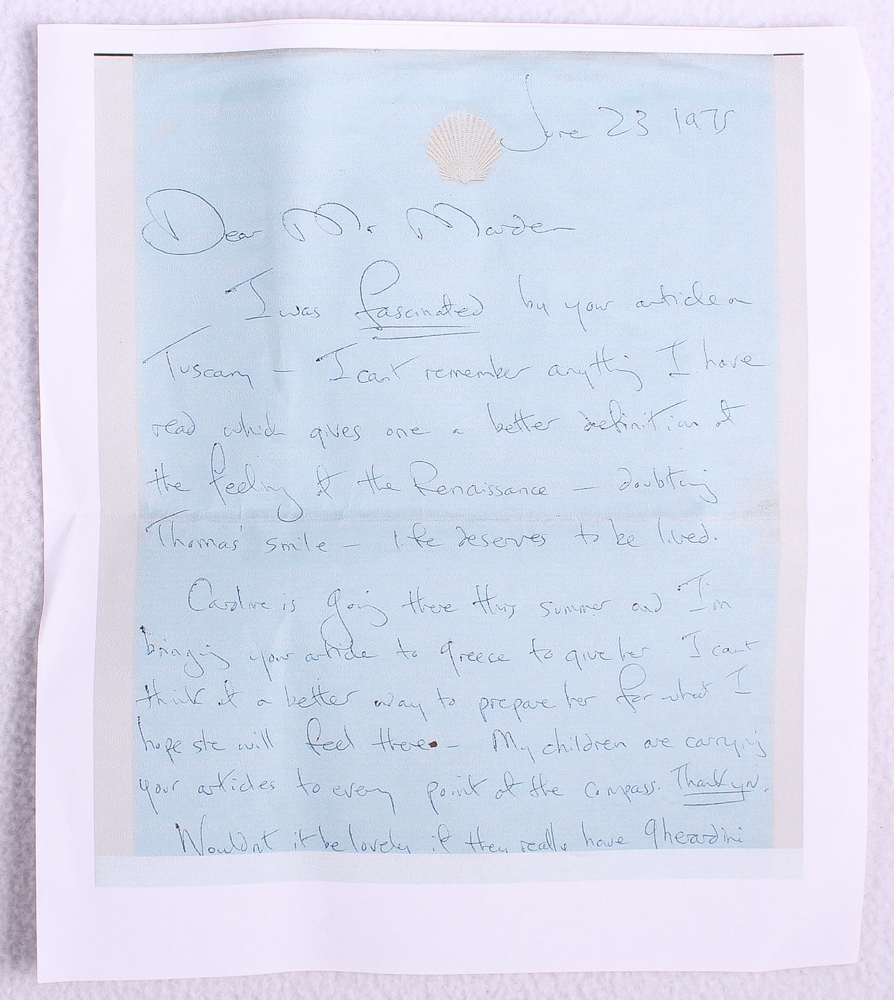 June 23 1975
Dear Mr. Marden
I was fascinated by your article on
Tuscany — I cant remember anything I have
read which gives one a better definition of
the feeling of the Renaissance — doubting
Thomas' smile — life deserves to be lived.
Caroline is going there this summer and I'm
bringing your article to Greece to give her I cant
think of a better way to prepare her for what I
hope she will feel there — My children are carrying
your articles to every point of the compass. Thank you.
Wouldnt it be lovely if they really have Gherardini